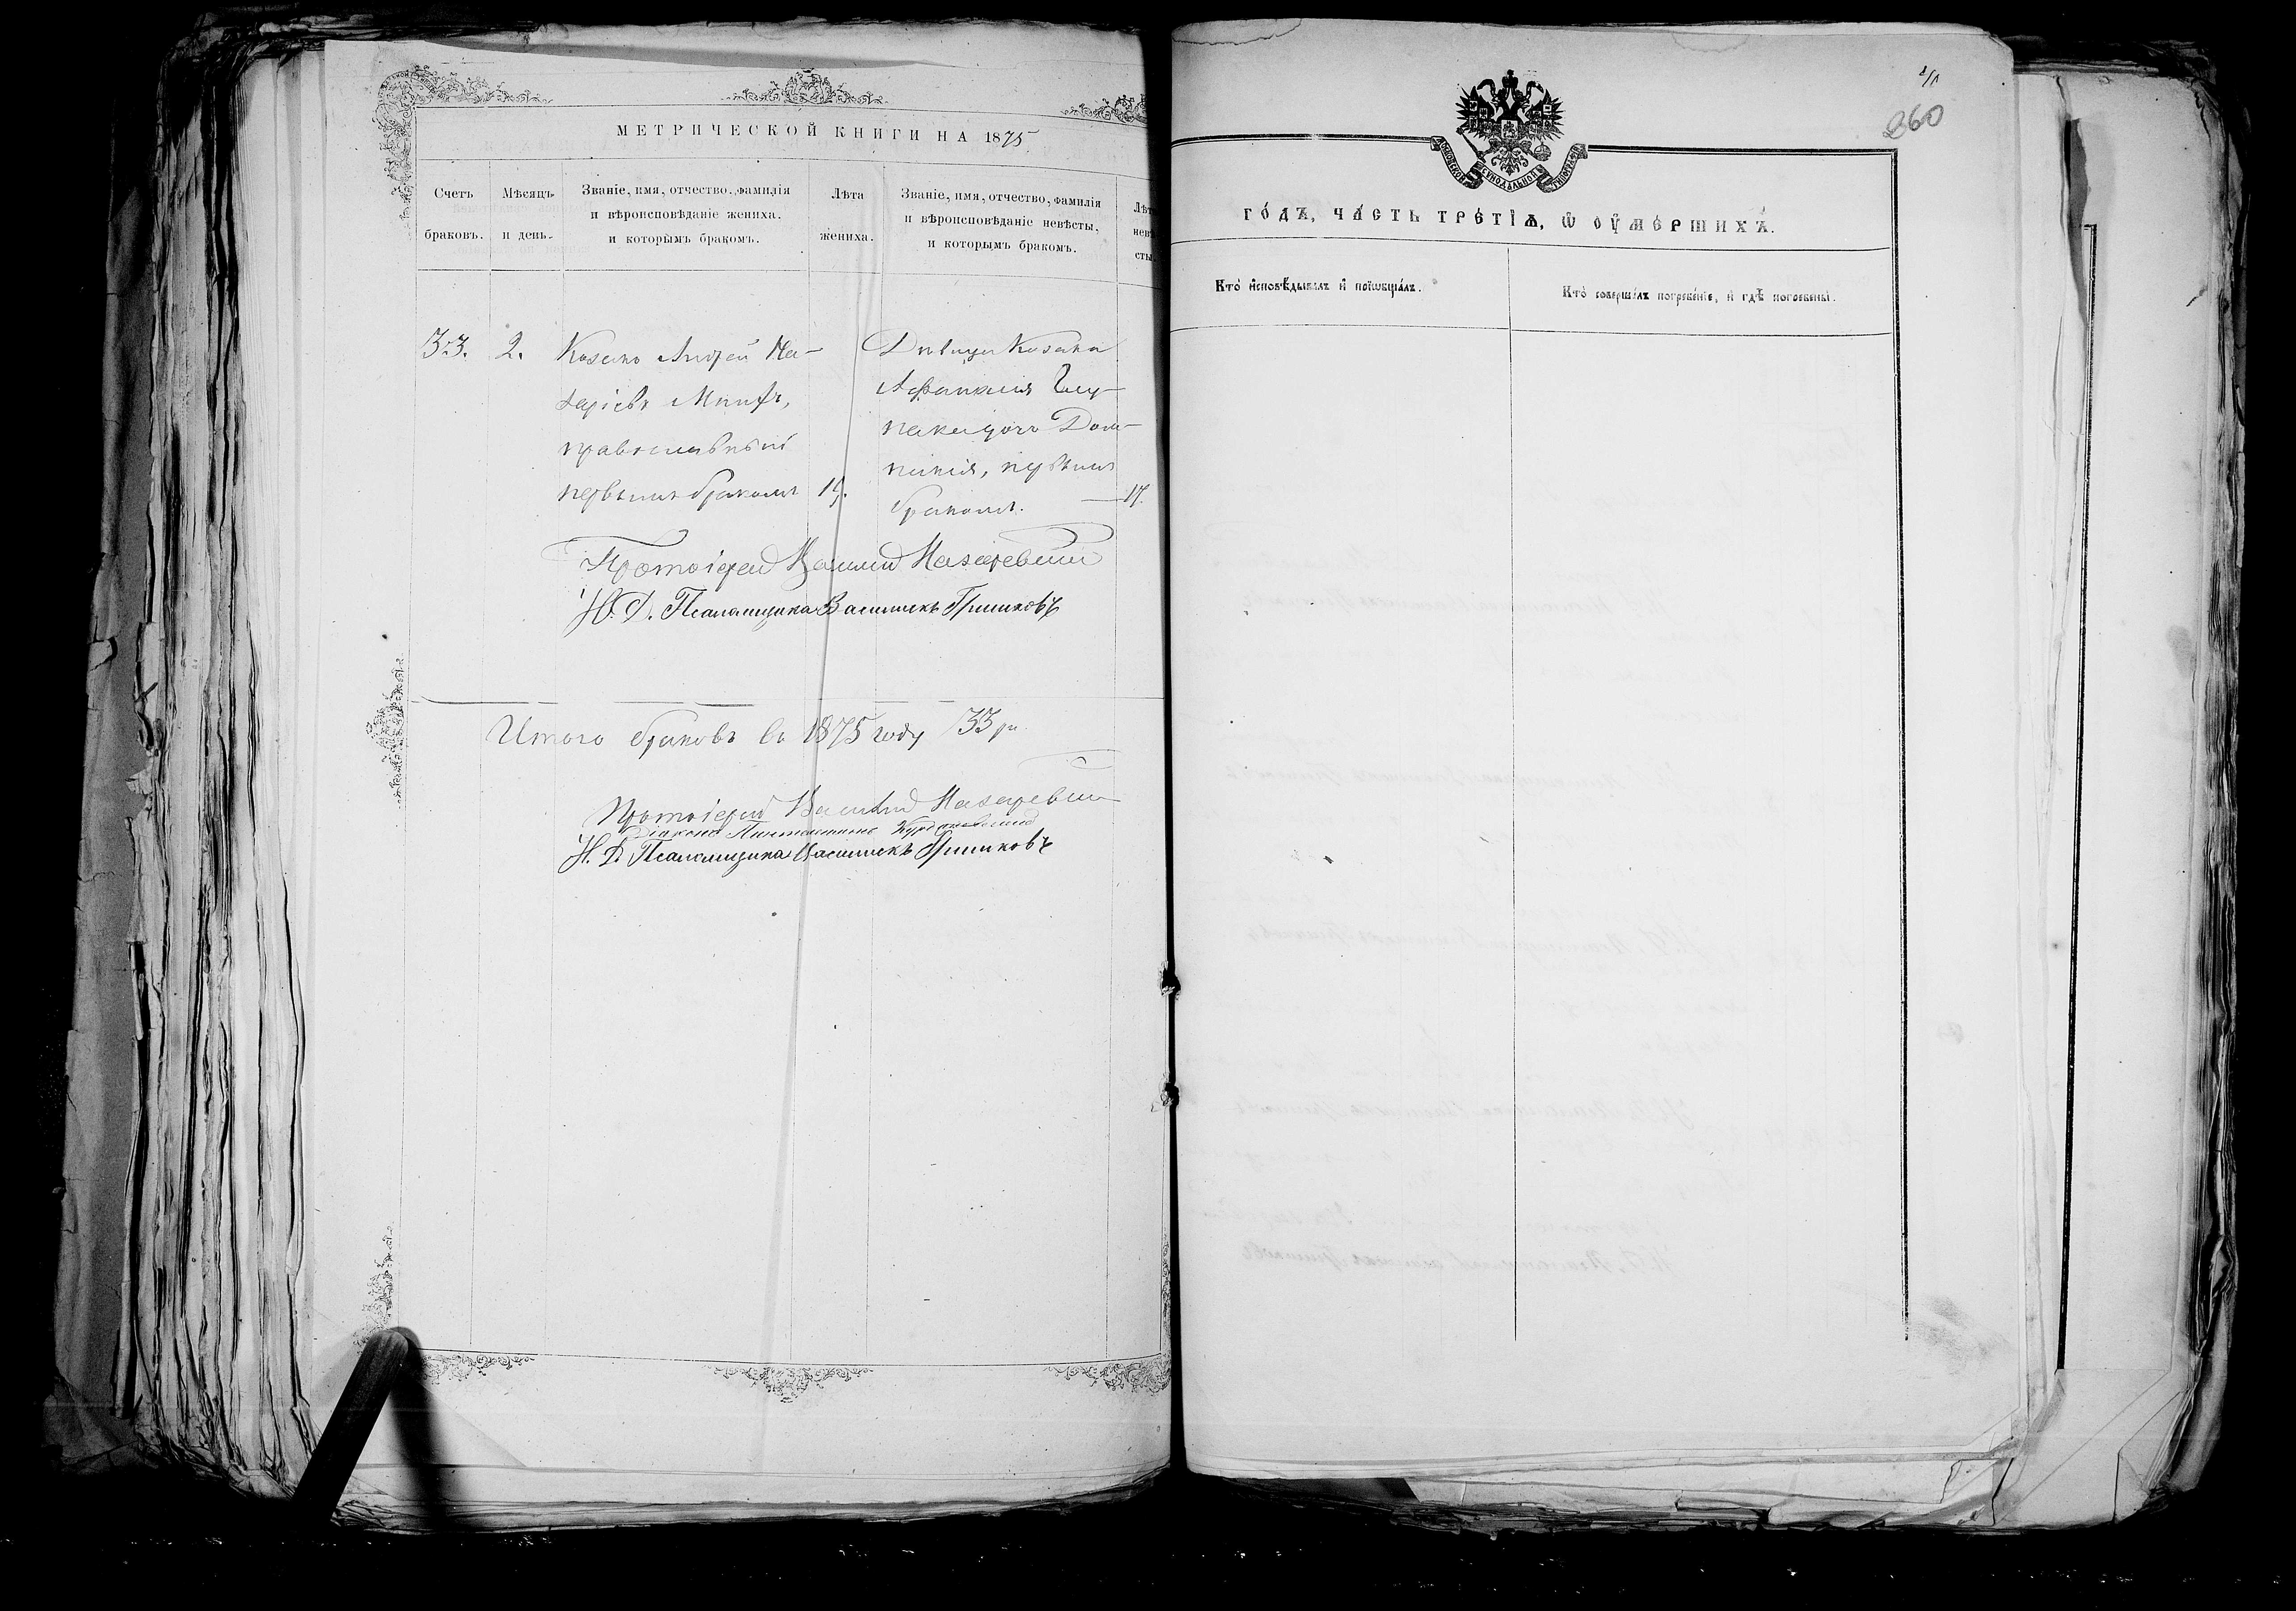 МЕТРИЧЕСКОЙ КНИГИ НА 1875
Счетъ браковъ.
Мѣсяцъ и день.
Званіе, имя, отчество, фамилія
и вѣроисповѣданіе жениха.
и которымъ бракомъ.
Лѣта
жениха.
Званіе, имя, отчество, фамилія
и вѣроисповѣданіе невѣсты,
и которымъ бракомъ.
Лѣт
невѣ
сты.
33. 2.
Козакъ Андрей На-
заріевъ
православный
первымъ бракомъ 19.
Дѣвица Козака
Афанасія
дочь Дом-
никія, первымъ
бракомъ. — 17.
Протоіерей Василій Назаревскій
И. Д. Псаломщика Василискъ Гришковъ
Итого браковъ въ 1875 году 33 ри
Протоіерей Василій Назаревскій
Діаконъ
И. Д. Псаломщика Василискъ Гришковъ
360
МОСКОВСКОЙ СѴНОДАЛЬНОЙ ТИПОГРАФІИ
ГО́ДЪ, ЧА́СТЬ ТРЕ́ТІѦ, Ѿ ОУ҆МЕ́РШИХЪ.
Кто̀ и҆сповѣ́дывалъ и҆ прїѡбща́лъ.
Кто̀ соверша́лъ погребе́нїе, и҆ гдѣ̀ погребены̀.